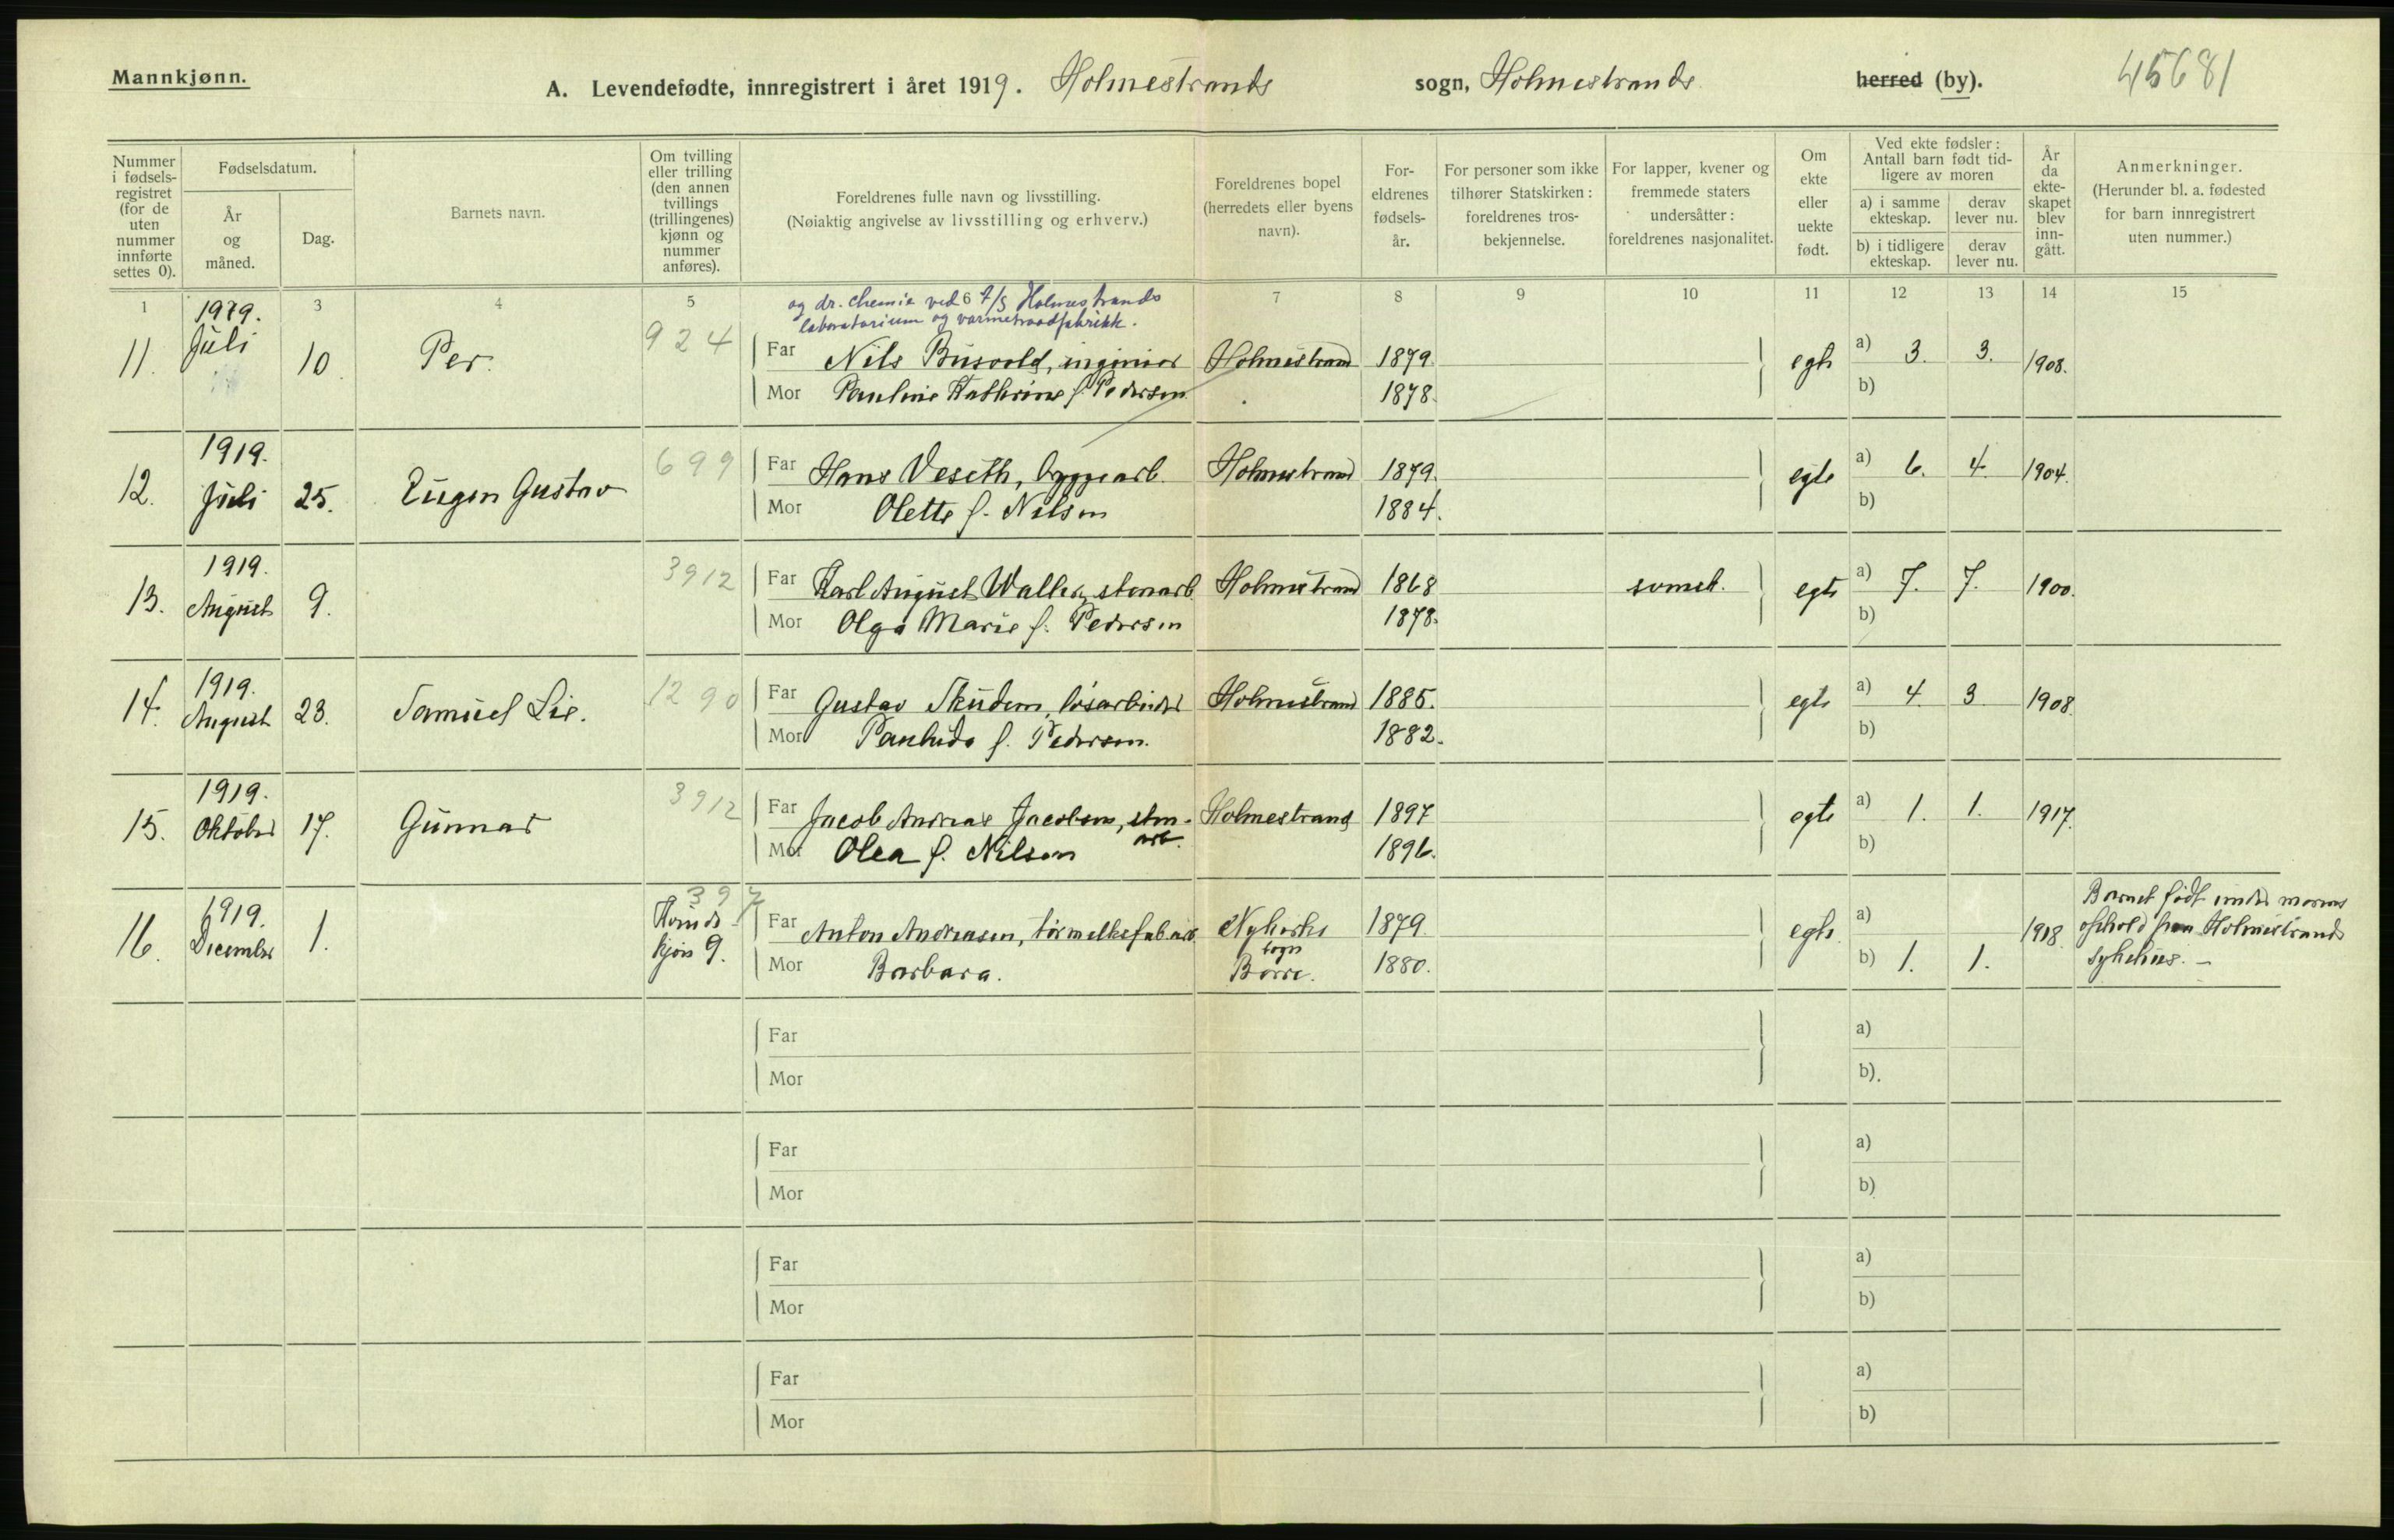 Mannkjønn.
A. Levendefødte, innregistrert i året 1919. Holmestrands sogn, Holmestrands herred (by). 45681
Nummer i fødsels-registret (for de uten nummer innførte settes 0).
Fødselsdatum.
År og måned.
Dag.
Barnets navn.
Om tvilling eller trilling (den annen tvillings (trillingenes) kjønn og nummer anføres).
Foreldrenes fulle navn og livsstilling.
(Nøiaktig angivelse av livsstilling og erhverv.)
Foreldrenes bopel (herredets eller byens navn).
For-eldrenes fødsels-år.
For personer som ikke tilhører Statskirken: foreldrenes tros-bekjennelse.
For lapper, kvener og fremmede staters undersåtter: foreldrenes nasjonalitet.
Om ekte eller uekte født.
Ved ekte fødsler: Antall barn født tid-ligere av moren
a) i samme ekteskap.
derav lever nu.
b) i tidligere ekteskap.
derav lever nu.
År da ekte-skapet blev inn-gått.
Anmerkninger.
(Herunder bl. a. fødested for barn innregistrert uten nummer.)
1 3 4 5 6 7 8 9 10 11 12 13 14 15
og dr. chemie ved A/S Holmestrands
laboratorium og varmetraadfabrikk.
11. 1919. Juli 10. Per. 924 Far Nils Busvold, ingeniør Holmestrand 1879. egte a) 3. 3. 1908.
Mor Pauline Kathrine f. Pedersen 1878. b)
12. 1919. Juli 25. Eugen Gustav 699 Far Hans Veseth, byggearb. Holmestrand 1879. egte a) 6. 4. 1904.
Mor Olette f. Nilsen 1884. b)
13. 1919. August 9. 3912 Far Karl August Waller, stenarb. Holmestrand 1868 svensk. egte a) 7. 7. 1900.
Mor Olga Marie f. Pedersen 1878. b)
14. 1919. August 23. Samuel Lie. 1290 Far Gustav Skudem, løsarbeider Holmestrand 1885. egte a) 4. 3. 1908.
Mor f. Pedersen. 1882. b)
15. 1919. Oktober 17. Gunnar 3912 Far Jacob Andreas Jacobsen, sten-arb. Holmestrand 1897 egte a) 1. 1. 1917.
Mor Olea f. Nilsen 1896. b)
16. 1919. December 1. 397 Kvinde-kjøn 9. Far Anton Andreasen, tørmelksfab.arb. Nykirke sogn 1879. egte. a) 1918. Barnet født under morens
Mor Barbara. Borre. 1880. b) 1. 1. ophold paa Holmestrands
sykehus. -
Far a)
Mor b)
Far a)
Mor b)
Far a)
Mor b)
Far a)
Mor b)